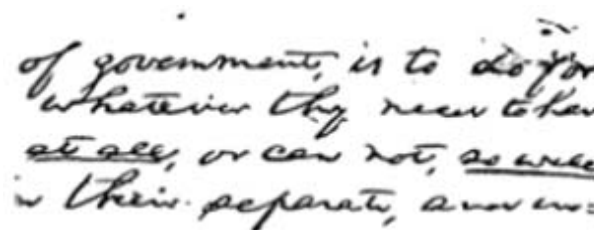 of government, is to do for
whatever they need to hav
at all, or can not, so well
in their separate, and in=